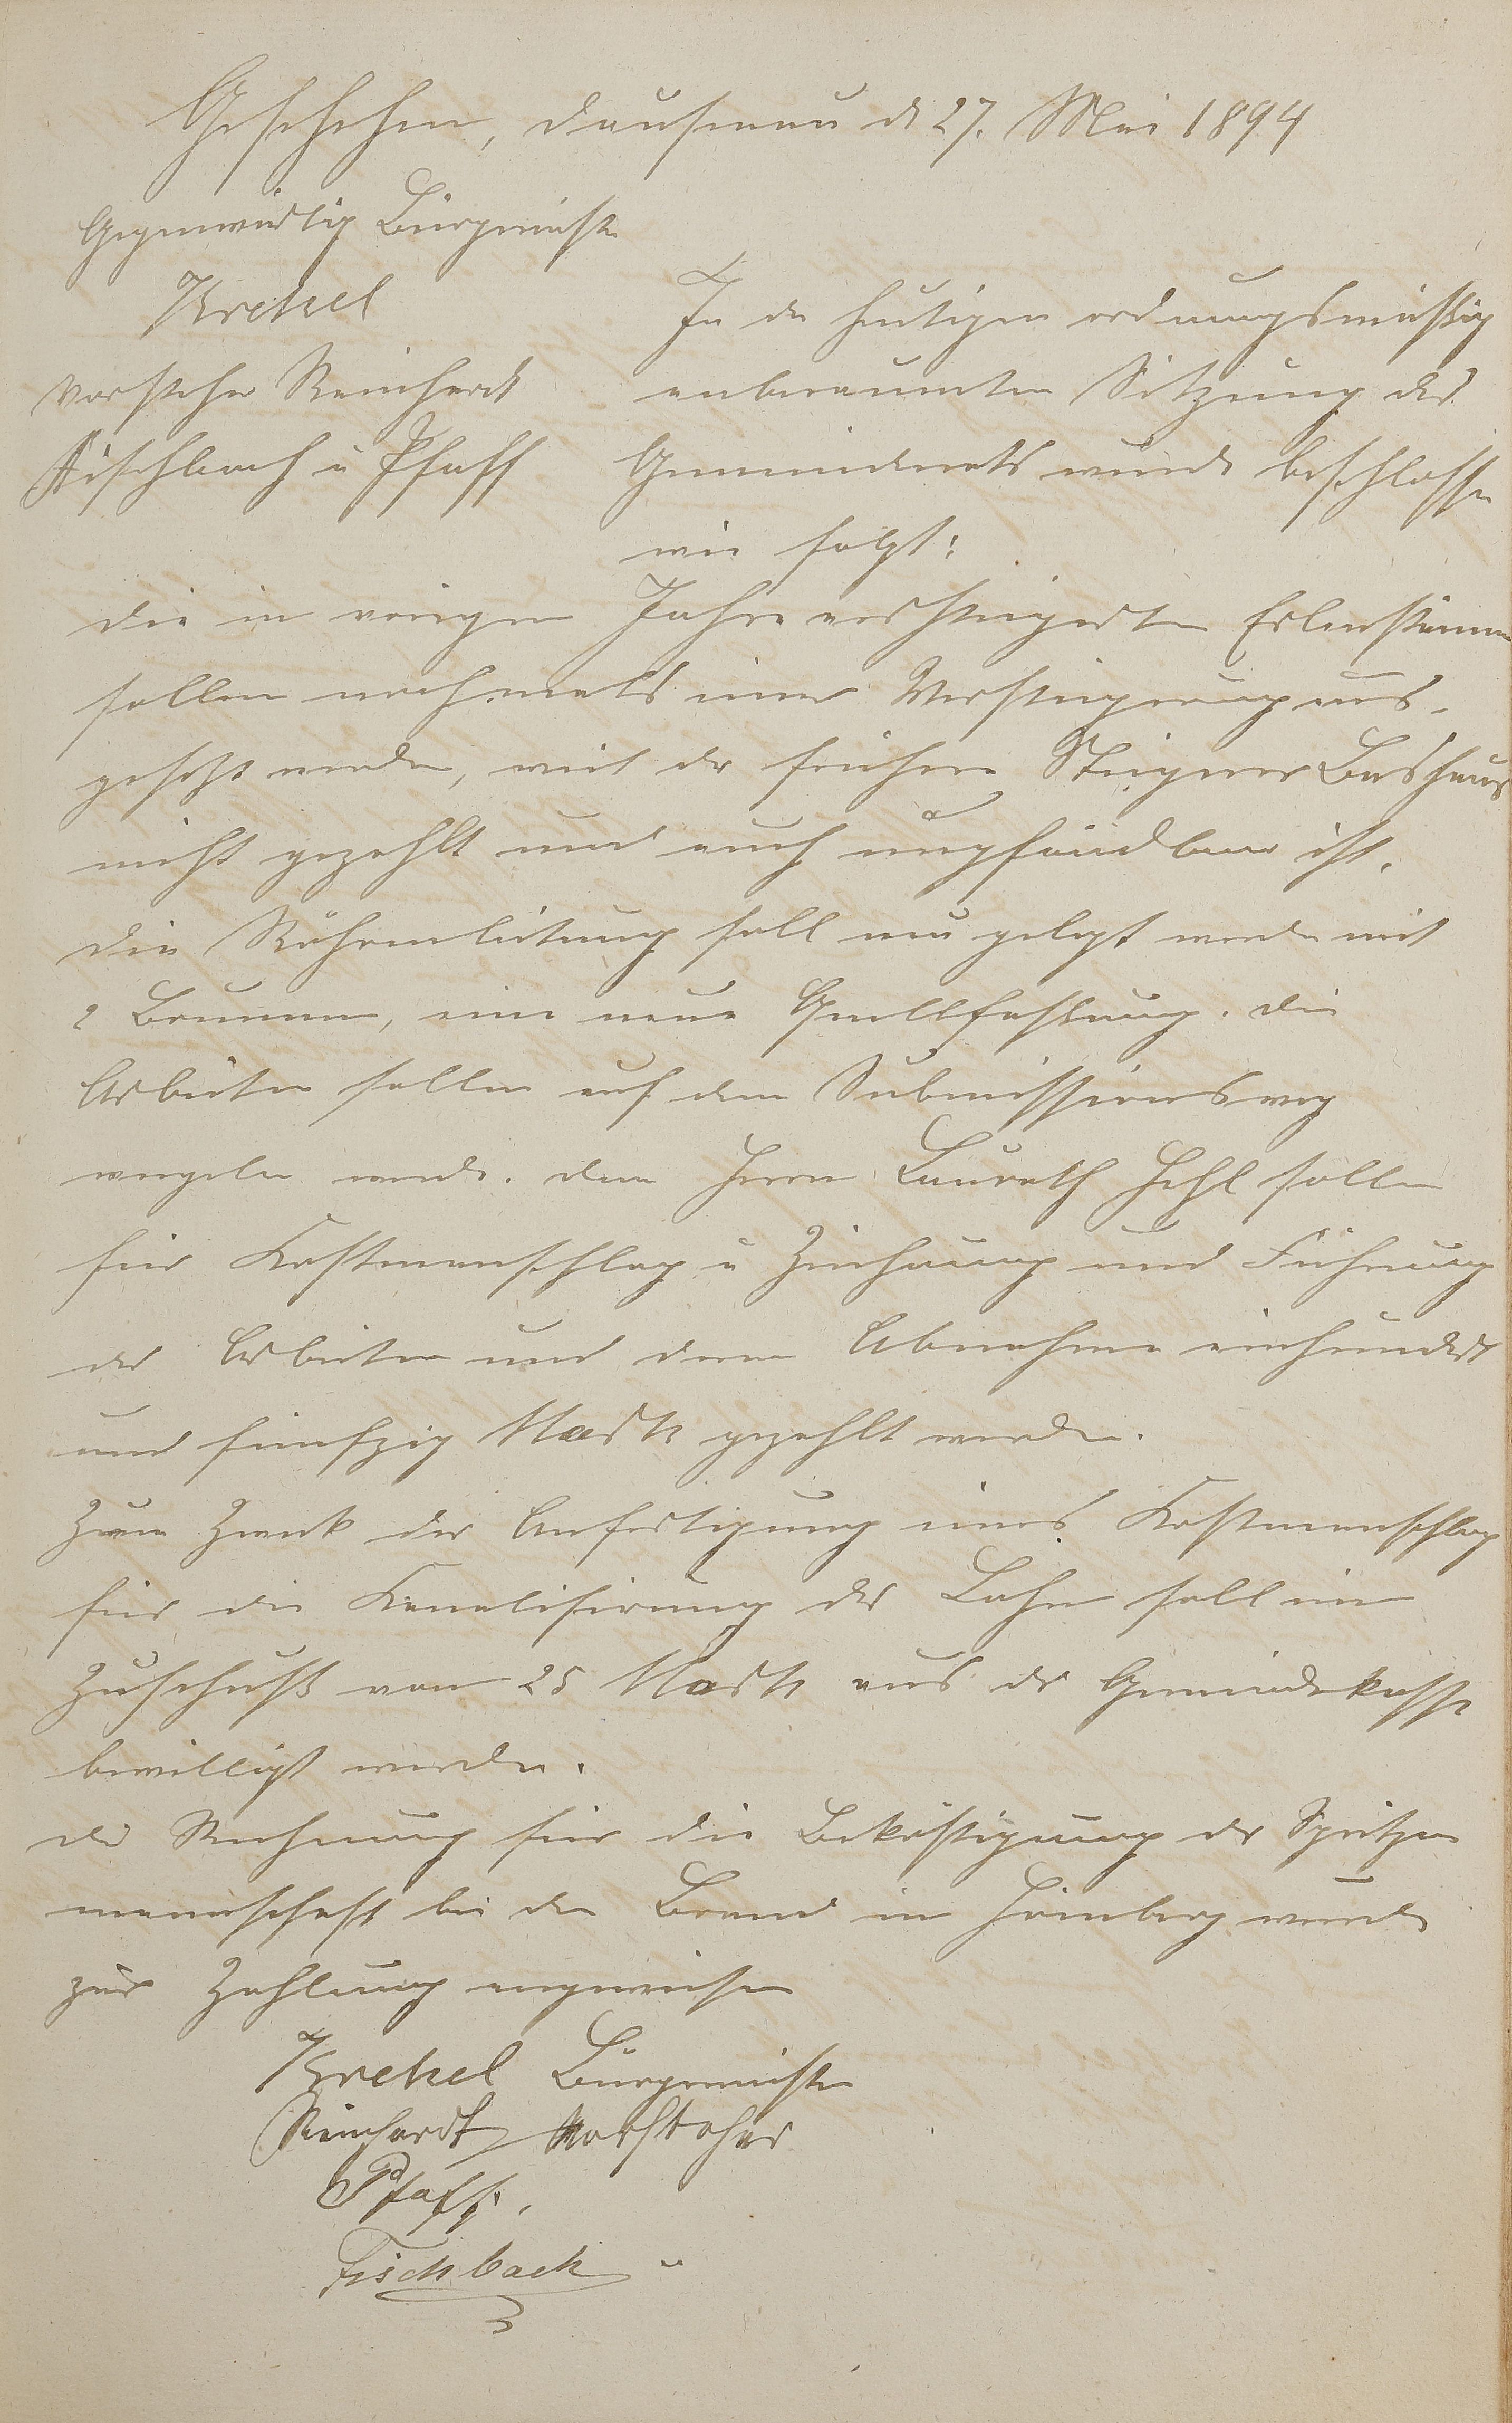 Geschehen, Dausenau d 27. Mai 1894
Gegenwärtig Bürgermeister
Krekel
Vorsteher Reinhardt
Fischbach u Pfaff
In der heutigen ordnungsmäßig
anberaumten Sitzung des
Gemeinderats wurde beschlossen
wie folgt:
Die im vorigen Jahre versteigerten Erlenstämme
sollen nochmals einer Versteigerung aus-
gesetzt werden, weil der frühere Steigerer
nicht gezahlt und auch unpfändbar ist.
Die Röhrenleitung soll neu gelegt werden mit
2 Brunnen, eine neue Quellfassung. Die
Arbeiten sollen auf dem Submissionsweg
vergeben werden. Dem Herrn Baurath Hehl sollen
für Kostenanschlag u Zeichnung und Führung
der Arbeiten und deren Abnahme einhundert
und fünfzig Mark gezahlt werden.
Zum Zweck der Anfertigung eines Kostenanschlag
für die Kanalisirung der Lahn soll ein
Zuschuß von 25 Mark aus der Gemeindekasse
bewilligt werden.
Die Rechnung für die Beköstigung der Spritzen
mannschaft bei dem Brand in Hömberg wurde
zur Zahlung angewiesen
Krekel Bürgermeister
Reinhardt Vorsteher
Pfaff.
Fischbach "